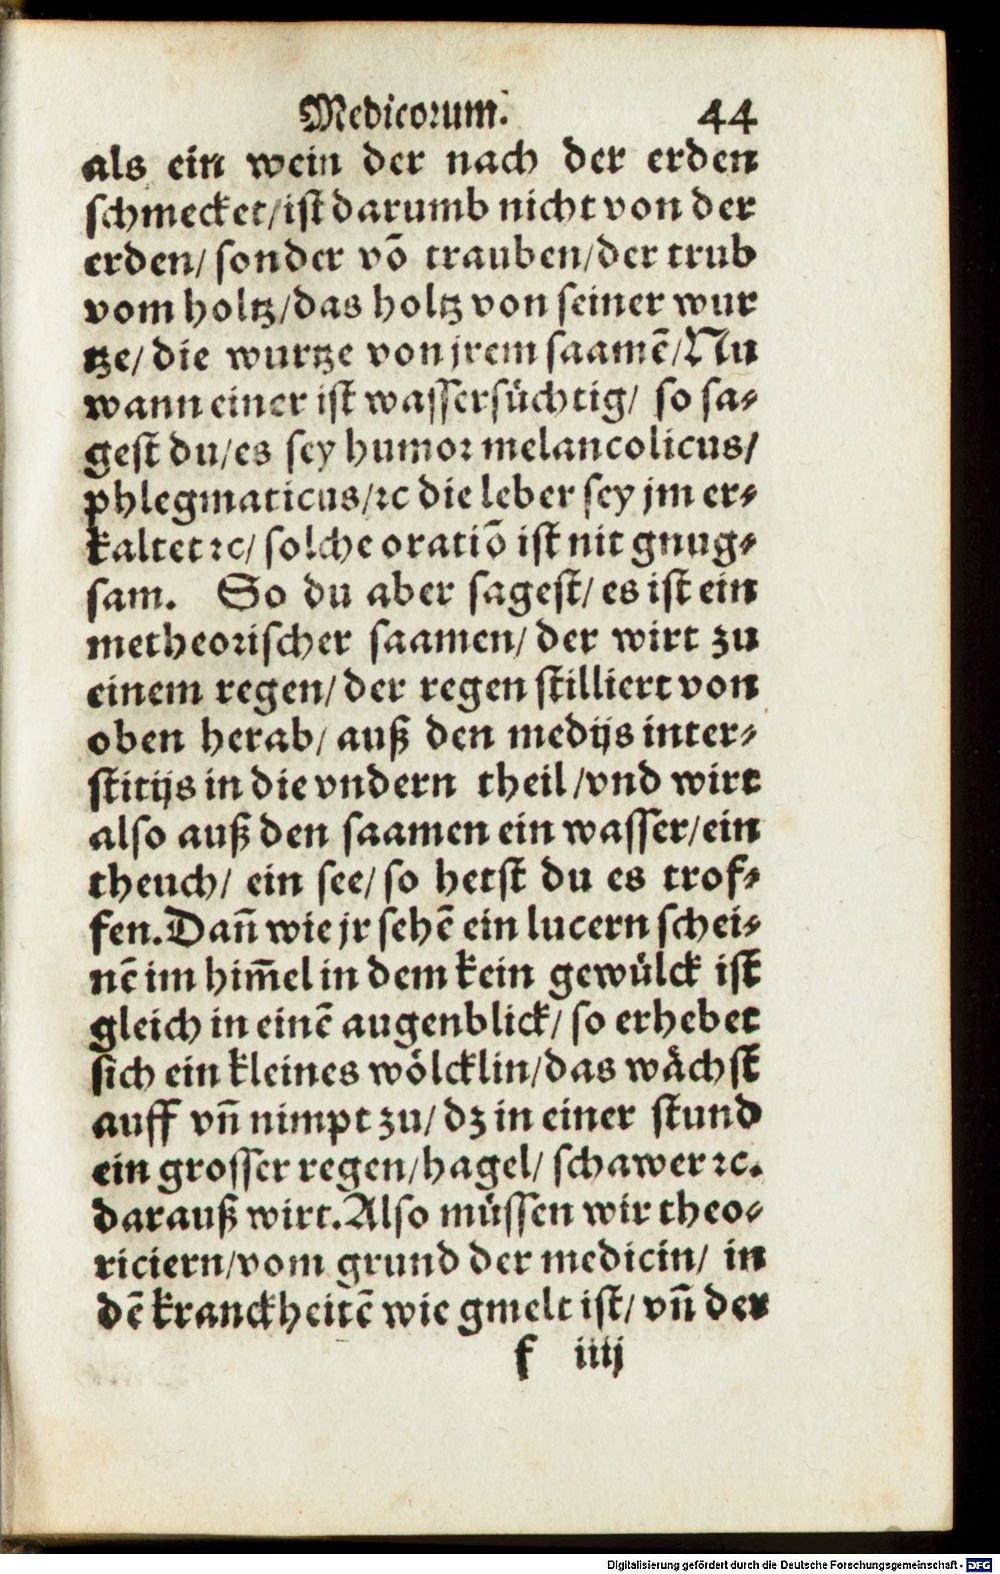 Medicorum. 44
als ein wein der nach der erden
schmecket/ist darumb nicht von der
erden/ sonder võ trauben/der trub
vom holtz/das holtz von seiner wur
tze/ die wurtze von jrem saamẽ/Nu
wann einer ist wassersüchtig/ so sa⸗
gest du/es sey humor melancolicus/
phlegmaticus/ꝛc die leber sey jm er⸗
kaltet ꝛc/ solche oratiõ ist nit gnug⸗
sam. So du aber sagest/ es ist ein
metheorischer saamen/ der wirt zu
einem regen/ der regen stilliert von
oben herab/ auß den medijs inter⸗
stitijs in die vndern theil/vnd wirt
also auß den saamen ein wasser/ein
theuch/ ein see/ so hetst du es trof⸗
fen. Dañ wie jr sehẽ ein lucern schei⸗
nẽ im him̃el in dem kein gewülck ist
gleich in einẽ augenblick/ so erhebet
sich ein kleines wölcklin/das wåchst
auff vñ nimpt zu/ dz in einer stund
ein grosser regen/hagel/ schawer ꝛc.
darauß wirt. Also müssen wir theo⸗
riciern/vom grund der medicin/ in
dẽ kranckheitẽ wie gmelt ist/ vñ der
f iiij
Digitalisierung gefördert durch die Deutsche Forschungsgemeinschaft - DFG